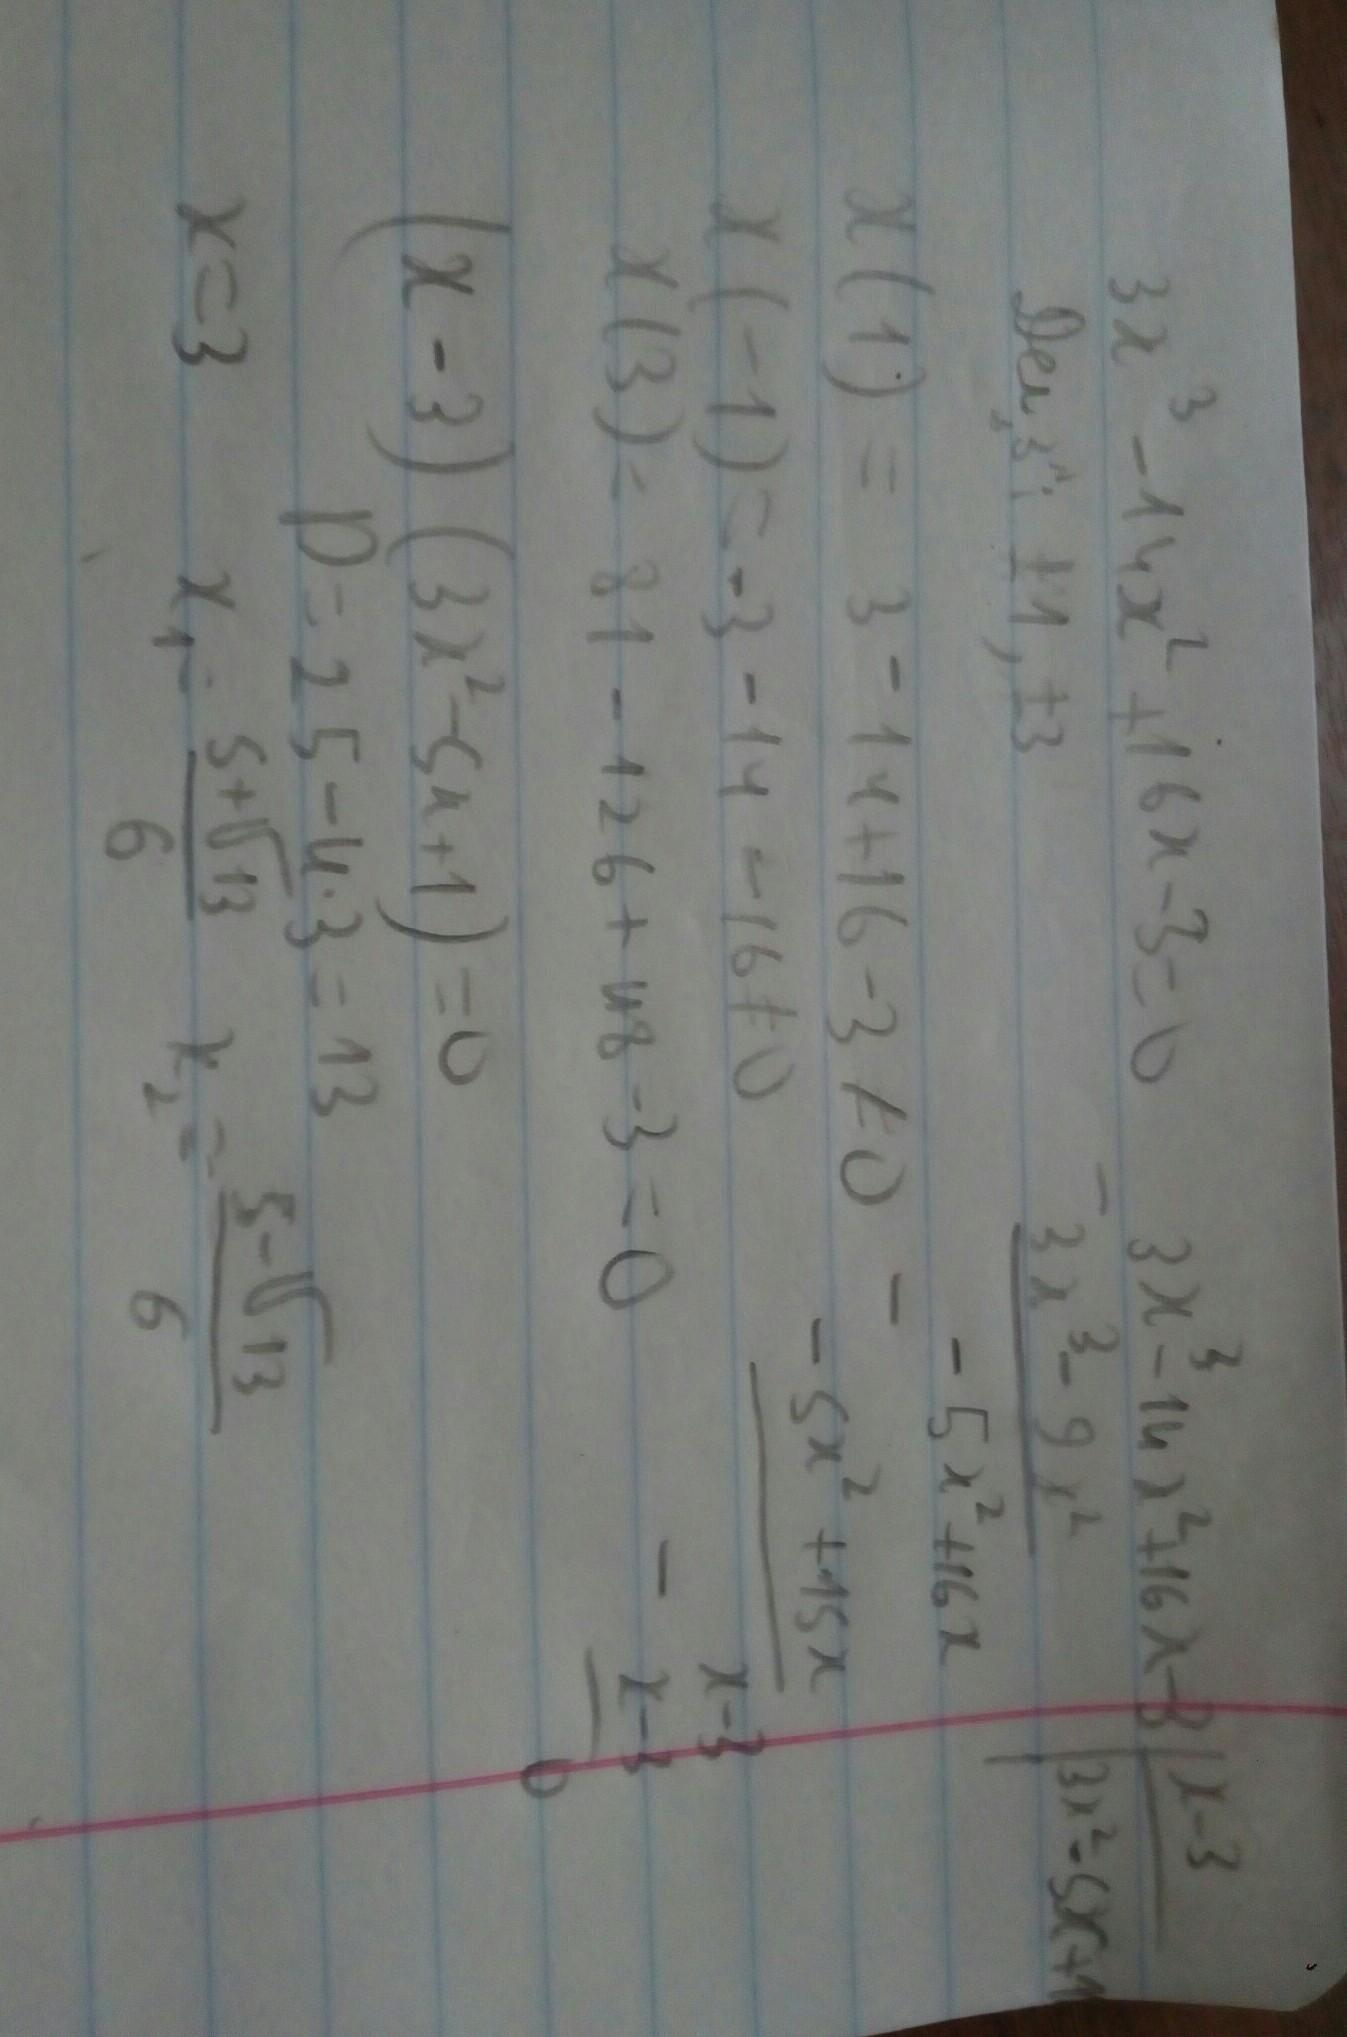 3x³-14x²+16x-3=0
Дел "3": ±1, ±3
x(1) = 3-14+16-3≠0
x(-1) = -3-14-16≠0
x(3) = 81-126+48-3=0
(x-3)(3x²-5x+1)=0
D=25-4·3=13
x=3 x₁=5+√13/6 x₂=5-√13/6
3x³-14x²+16x-3 | x-3
- 3x³-9x² | 3x²-5x+1
-5x²+16x
- -5x²+15x
x-3
- x-3
0